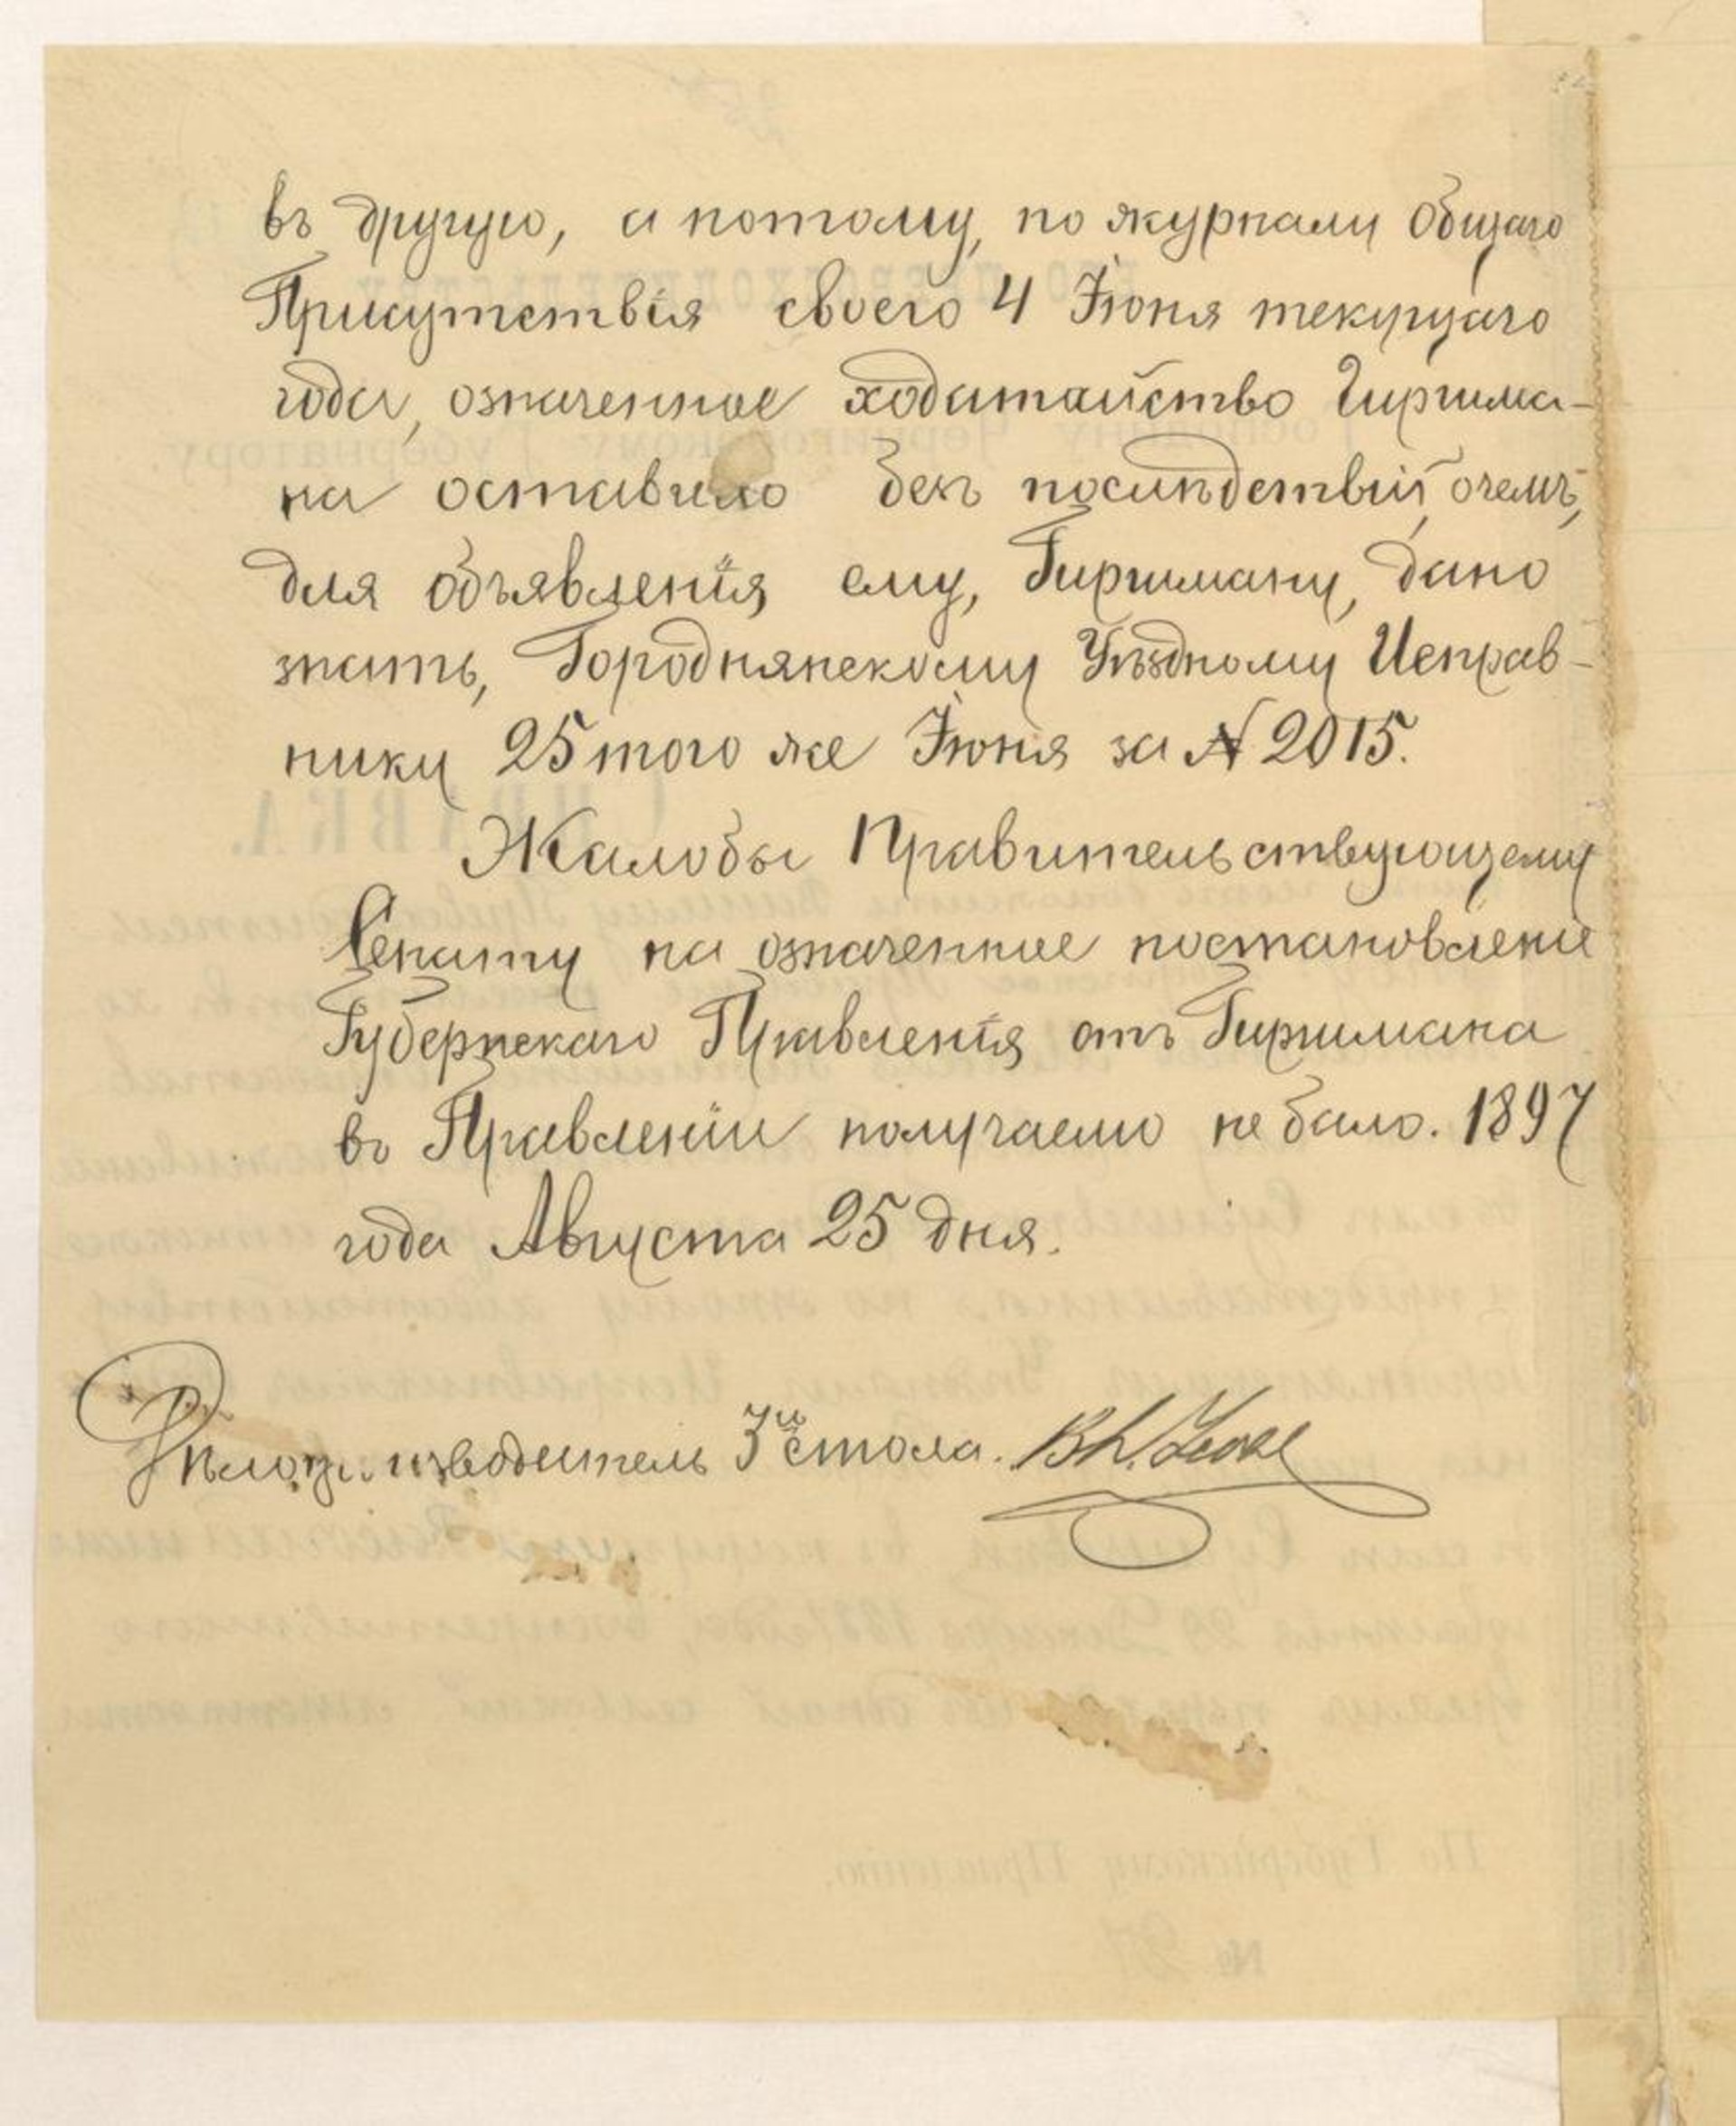 въ другую, а потому, по журналу Общаго
Присутствія своего 4 Іюня текущаго
года, означенное ходатайство Гиршма-
на оставило безъ послѣдствій, о чемъ,
для объявленія ему, Гиршману, дано
знать, Городнянскому Уѣздному Исправ-
нику 25 того же Іюня за № 2015.
Жалобы Правительствующему
Сенату на означенное постановленіе
Губернскаго Правленія отъ Гиршмана
въ Правленіи получаемо не было. 1897
года Августа 25 дня.
Дѣлопроизводитель 3го стола.